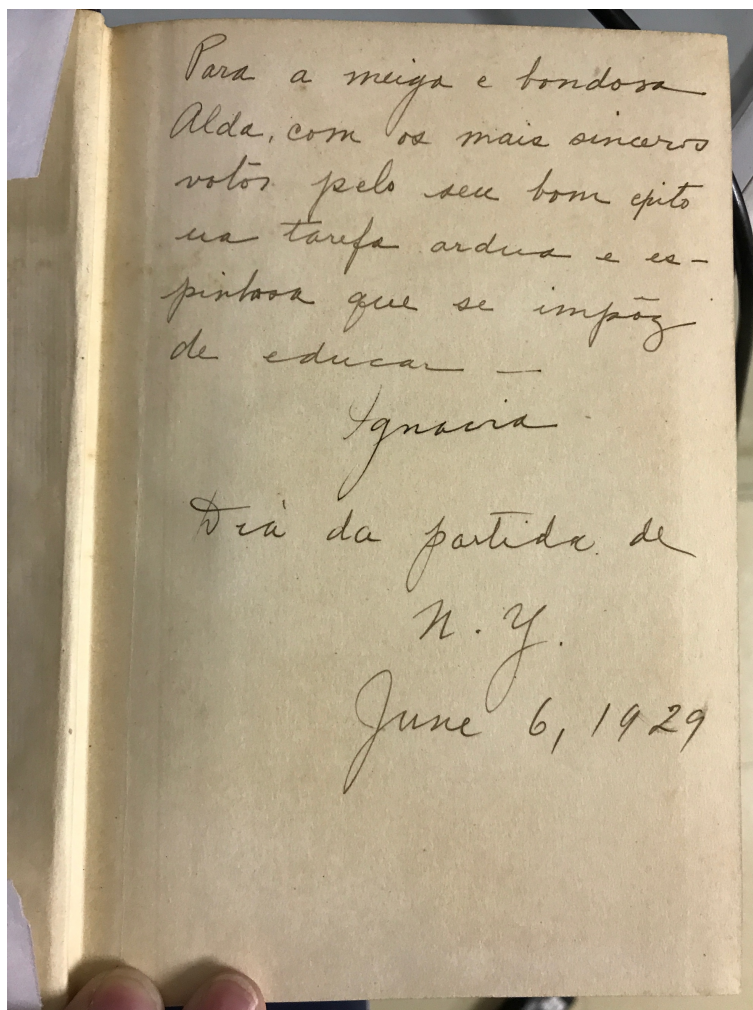 Para a meiga e bondosa
Alda, com os mais sinceros
votos pelo seu bom exito
na tarefa ardua e es-
pinhosa que se impôz
de educar —
Ignacia
Dia da partida de
N. Y.
June 6, 1929